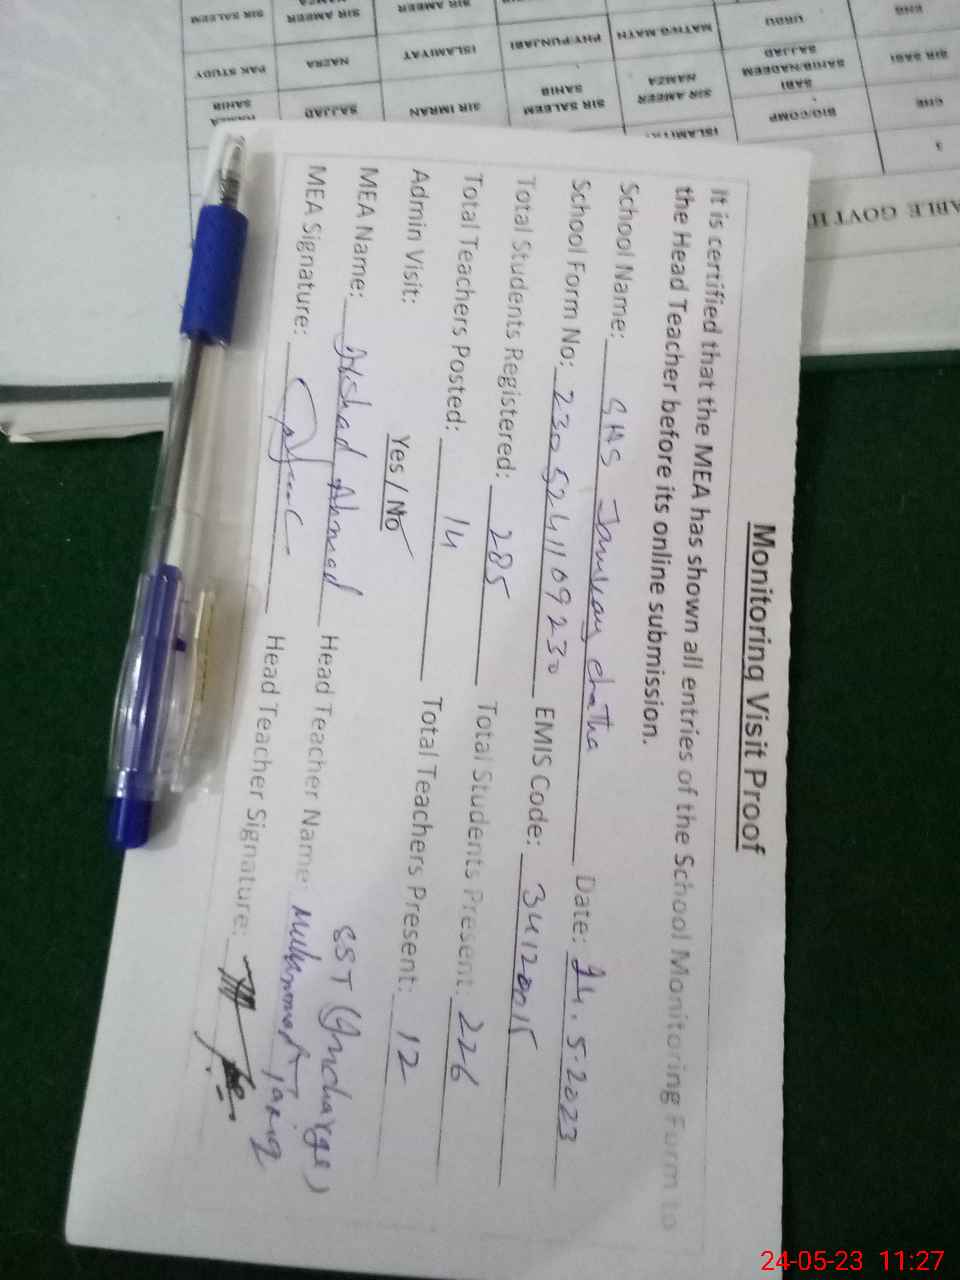 Monitoring Visit Proof
It is certified that the MEA has shown all entries of the School Monitoring Form to
the Head Teacher before its online submission.
School Name: GHS chatha Date: 24.5.2023
School Form No: 2305241109230 EMIS Code:
Total Students Registered: 285 Total Students Present: 226
Total Teachers Posted: 14 Total Teachers Present: 12
Admin Visit: Yes / No
SST (Incharge)
MEA Name: Arshad Ahmad Head Teacher Name: Muhammad Tariq
MEA Signature: Head Teacher Signature:
ABLE GOVT H
3
ENG BIO/COMP ISLAMIYAT
SIR SABI SABI SAHIB/NADEEM SAJJAD SIR AMEER HAMZA SIR SALEEM SAHIB SIR IMRAN SAJJAD HAMZA SAHIB
ENG URDU MATH/G.MATH PHY/PUNJABI ISLAMIYAT NAZRA PAK STUDY
SIR AMEER SIR AMEER HAMZA SIR SALEEM
24-05-23 11:27